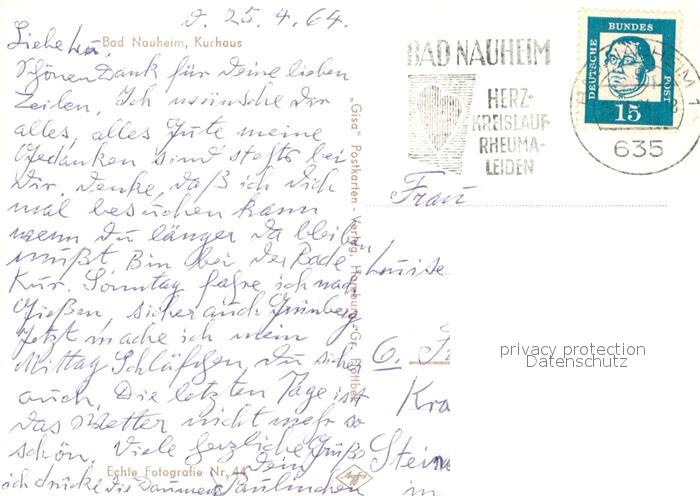 d. 25.4.64.
Liebe
Bad Nauheim, Kurhaus
Schönen Dank für Deine lieben
Zeilen. Ich wünsche Dir
alles, alles Gute meine
Gedanken sind stehts bei
Dir. Denke, daß ich Dich
mal besuchen kann
wenn Du länger da bleiben
mußt. Bin bei der Bade
Kur. Sonntag fahre ich nach
Gießen, sicher auch Grünberg.
Jetzt mache ich mein
Mittag Schläfchen, Du sicher
auch. Die letzten Tage ist
das Wetter nicht mehr so
schön. Viele herzliche Grüße
Dein
ich drücke die Daumen Paulinchen
Echte Fotografie Nr. 44
Agfa
„Gisa" Postkarten - Verlag, Hamburg-Gr. Flottbek
BAD NAUHEIM
HERZ-
KREISLAUF-
RHEUMA-
LEIDEN
DEUTSCHE
BUNDES
POST
15
635
Frau
Luise
Kra
Stein
privacy protection
Datenschutz